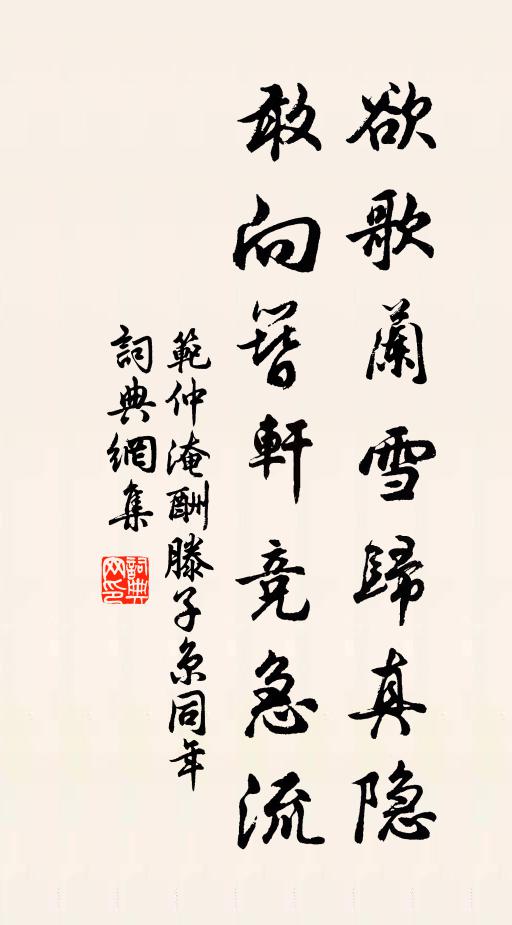 欲歌蘭雪歸真隐
敢向簪軒竞急流
範仲淹酬滕子京同年
詞典網集
詞典网印